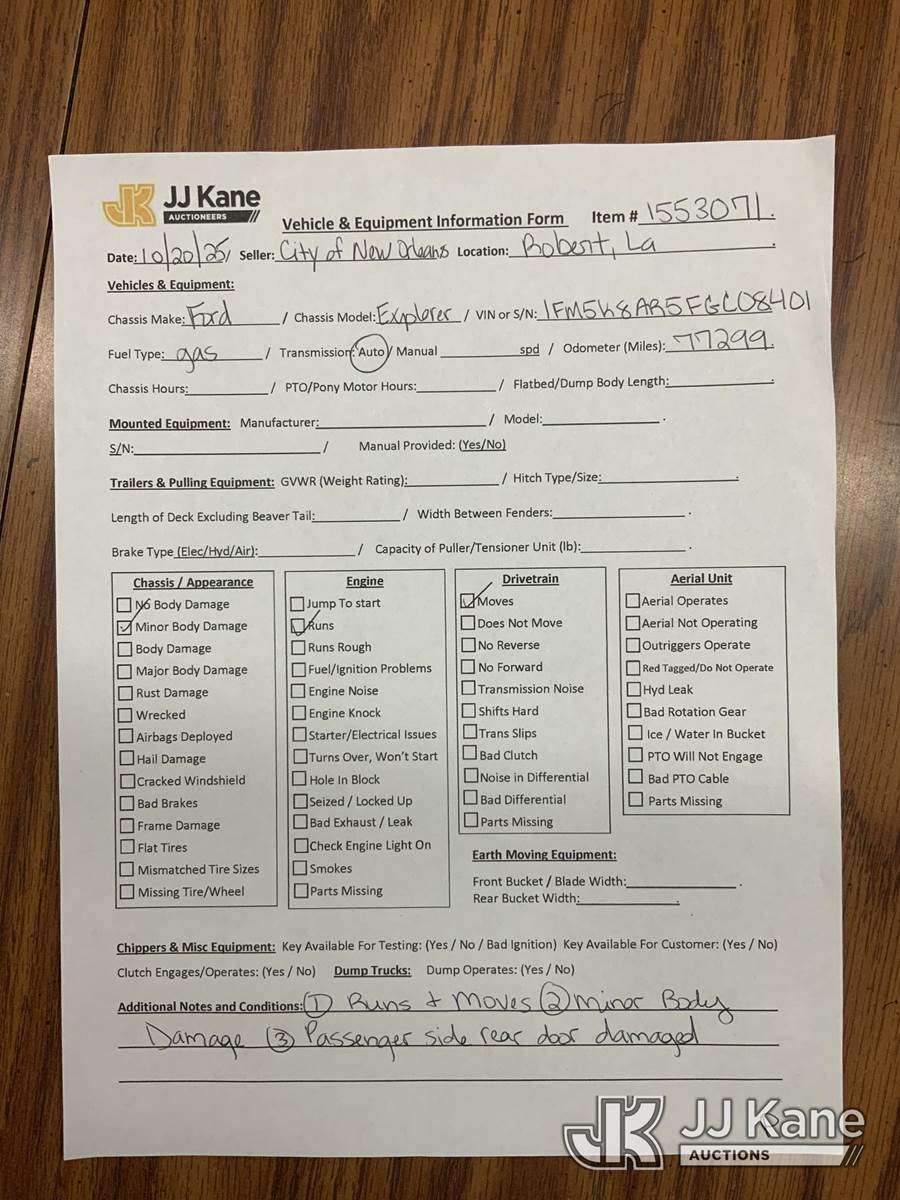 JJ Kane
AUCTIONEERS
Vehicle & Equipment Information Form Item # 1553071.
Date: 10/20/25/ Seller: City of New Orleans Location: Robert, La.
Vehicles & Equipment:
Chassis Make: Ford / Chassis Model: Explorer / VIN or S/N: 1FM5K8AR5FGC08401
Fuel Type: gas / Transmission: Auto / Manual spd / Odometer (Miles): 77299.
Chassis Hours: / PTO/Pony Motor Hours: / Flatbed/Dump Body Length: .
Mounted Equipment: Manufacturer: / Model: .
S/N: / Manual Provided: (Yes/No)
Trailers & Pulling Equipment: GVWR (Weight Rating): / Hitch Type/Size: .
Length of Deck Excluding Beaver Tail: / Width Between Fenders: .
Brake Type (Elec/Hyd/Air): / Capacity of Puller/Tensioner Unit (lb): .
Chassis / Appearance
No Body Damage
Minor Body Damage
Body Damage
Major Body Damage
Rust Damage
Wrecked
Airbags Deployed
Hail Damage
Cracked Windshield
Bad Brakes
Frame Damage
Flat Tires
Mismatched Tire Sizes
Missing Tire/Wheel
Engine
Jump To start
Runs
Runs Rough
Fuel/Ignition Problems
Engine Noise
Engine Knock
Starter/Electrical Issues
Turns Over, Won't Start
Hole In Block
Seized / Locked Up
Bad Exhaust / Leak
Check Engine Light On
Smokes
Parts Missing
Drivetrain
Moves
Does Not Move
No Reverse
No Forward
Transmission Noise
Shifts Hard
Trans Slips
Bad Clutch
Noise in Differential
Bad Differential
Parts Missing
Aerial Unit
Aerial Operates
Aerial Not Operating
Outriggers Operate
Red Tagged/Do Not Operate
Hyd Leak
Bad Rotation Gear
Ice / Water In Bucket
PTO Will Not Engage
Bad PTO Cable
Parts Missing
Earth Moving Equipment:
Front Bucket / Blade Width: .
Rear Bucket Width: .
Chippers & Misc Equipment: Key Available For Testing: (Yes / No / Bad Ignition) Key Available For Customer: (Yes / No)
Clutch Engages/Operates: (Yes / No) Dump Trucks: Dump Operates: (Yes / No)
Additional Notes and Conditions: (1) Runs + Moves (2) Minor Body
Damage (3) Passenger side rear door damaged
JJ Kane
AUCTIONS